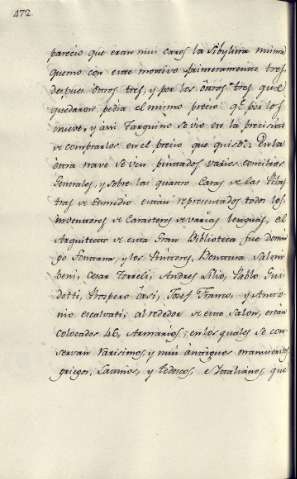 472
parecio que eran mui caros la Sibylina mima
quemo con este motivo primeramente tres,
despues otros tres, y por los otros tres que
quedaron pedia el mismo precio qe por los
nueve, y assi Tarquino se vio en la precision
de comprarles en el precio que quiso. En la
otra nave se ven pintados varios concilios
Generales, y sobre las quatro Caras de las Pilas
tras de Enmedio estan representados todos los
inventores de Caracteres de varias lenguas, el
Arquitecto de esta Gran Biblioteca fue Domin
go Fontana, y los Pintores, Ventura Salim
beni, Cesar Torreli, Andres Lilio, Pablo Gui
dotti, Prospero Orsi, Josef Franco, y Anto
nio Escalvati; al rededor de este Salon, estan
colocados 46, Armarios; en los quales se con
servan rarisimos, y mui antiguos manuscritos
griegos, Latinos, y Todescos, e Italianos, que